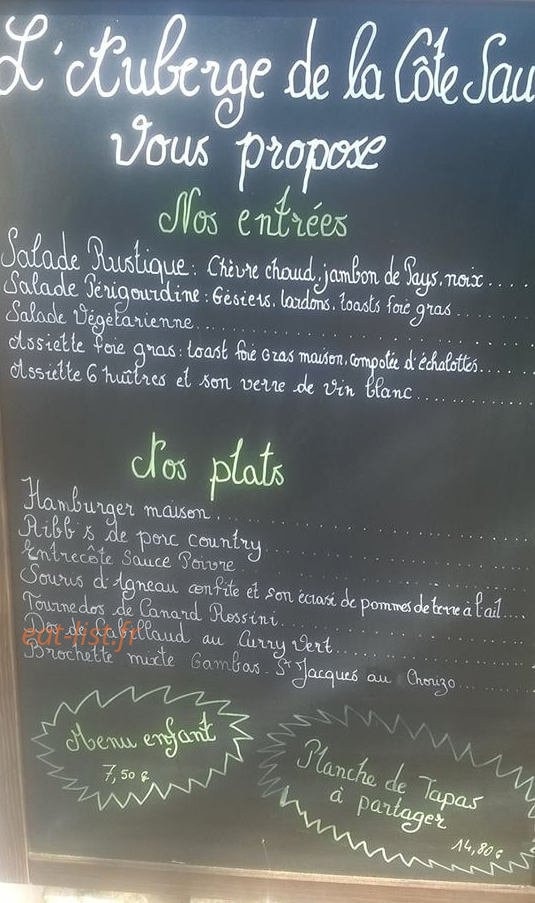 L'Auberge de la Côte Sau
Vous propose
Nos entrées
Salade Rustique : Chèvre chaud, jambon de Pays, noix....
Salade Périgourdine : Gésiers, lardons, toasts foie gras....
Salade Végétarienne....
Assiette foie gras : toast foie Gras maison, compotée d'échalottes....
Assiette 6 huîtres et son verre de vin blanc....
Nos plats
Hamburger maison....
Ribb's de porc country....
Entrecôte Sauce Poivre
Souris d'Agneau confite et son écrasé de pommes de terre à l'ail....
Tournedos de Canard Rossini....
Dos de Cabillaud au Curry Vert....
eat-list.fr
Brochette mixte Gambas. St Jacques au Chorizo....
Menu enfant
7,50 €
Planche de Tapas
à partager
14,80 €